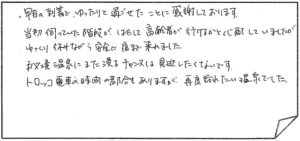 ・早目の到着で、ゆったりと過ごせたことに感謝しております。
当初伺っていた階段がはたして高齢者が行けるかと心配していましたが
ゆっくり休みながら安全に宿まで来れました。
お父様温泉にまた浸るチャンスは見逃したくないです。
トロッコ電車の時間の都合もありますが、再度訪れたい温泉でした。